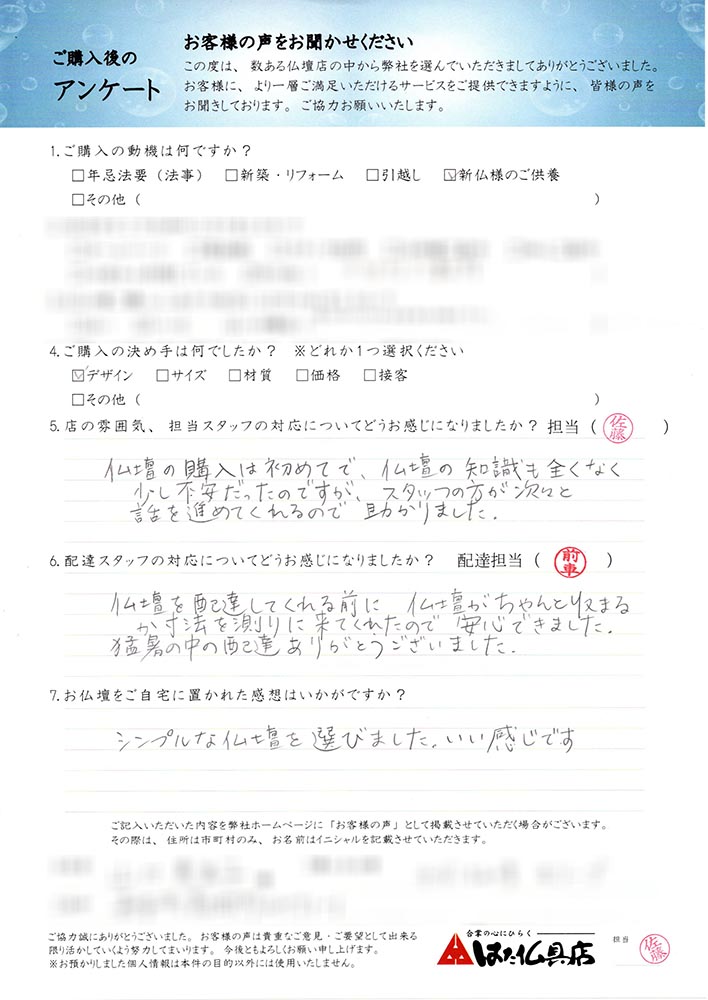 ご購入後の
アンケート
お客様の声をお聞かせください
この度は、数ある仏壇店の中から弊社を選んでいただきましてありがとうございました。
お客様に、より一層ご満足いただけるサービスをご提供できますように、皆様の声を
お聞きしております。ご協力お願いいたします。
1.ご購入の動機は何ですか？
□年忌法要（法事） □新築・リフォーム □引越し ☑新仏様のご供養
□その他（ ）
4.ご購入の決め手は何でしたか？ ※どれか1つ選択ください
☑デザイン □サイズ □材質 □価格 □接客
□その他（ ）
5.店の雰囲気、担当スタッフの対応についてどうお感じになりましたか？ 担当（ 佐藤 ）
仏壇の購入は初めてで、仏壇の知識も全くなく
少し不安だったのですが、スタッフの方が次々と
話を進めてくれるので助かりました.
6.配達スタッフの対応についてどうお感じになりましたか？ 配達担当（ 前車 ）
仏壇を配達してくれる前に 仏壇がちゃんと収まる
か寸法を測りに来てくれたので安心できました.
猛暑の中の配達ありがとうございました.
7.お仏壇をご自宅に置かれた感想はいかがですか？
シンプルな仏壇を選びました.いい感じです
ご記入いただいた内容を弊社ホームページに「お客様の声」として掲載させていただく場合がございます。
その際は、住所は市町村のみ、お名前はイニシャルを記載させていただきます。
ご協力誠にありがとうございました。お客様の声は貴重なご意見・ご要望として出来る
限り活かしていくよう努力してまいります。今後ともよろしくお願い申し上げます。
※お預かりしました個人情報は本件の目的以外には使用いたしません。
合掌の心にひらく
はた仏具店
担当 佐藤